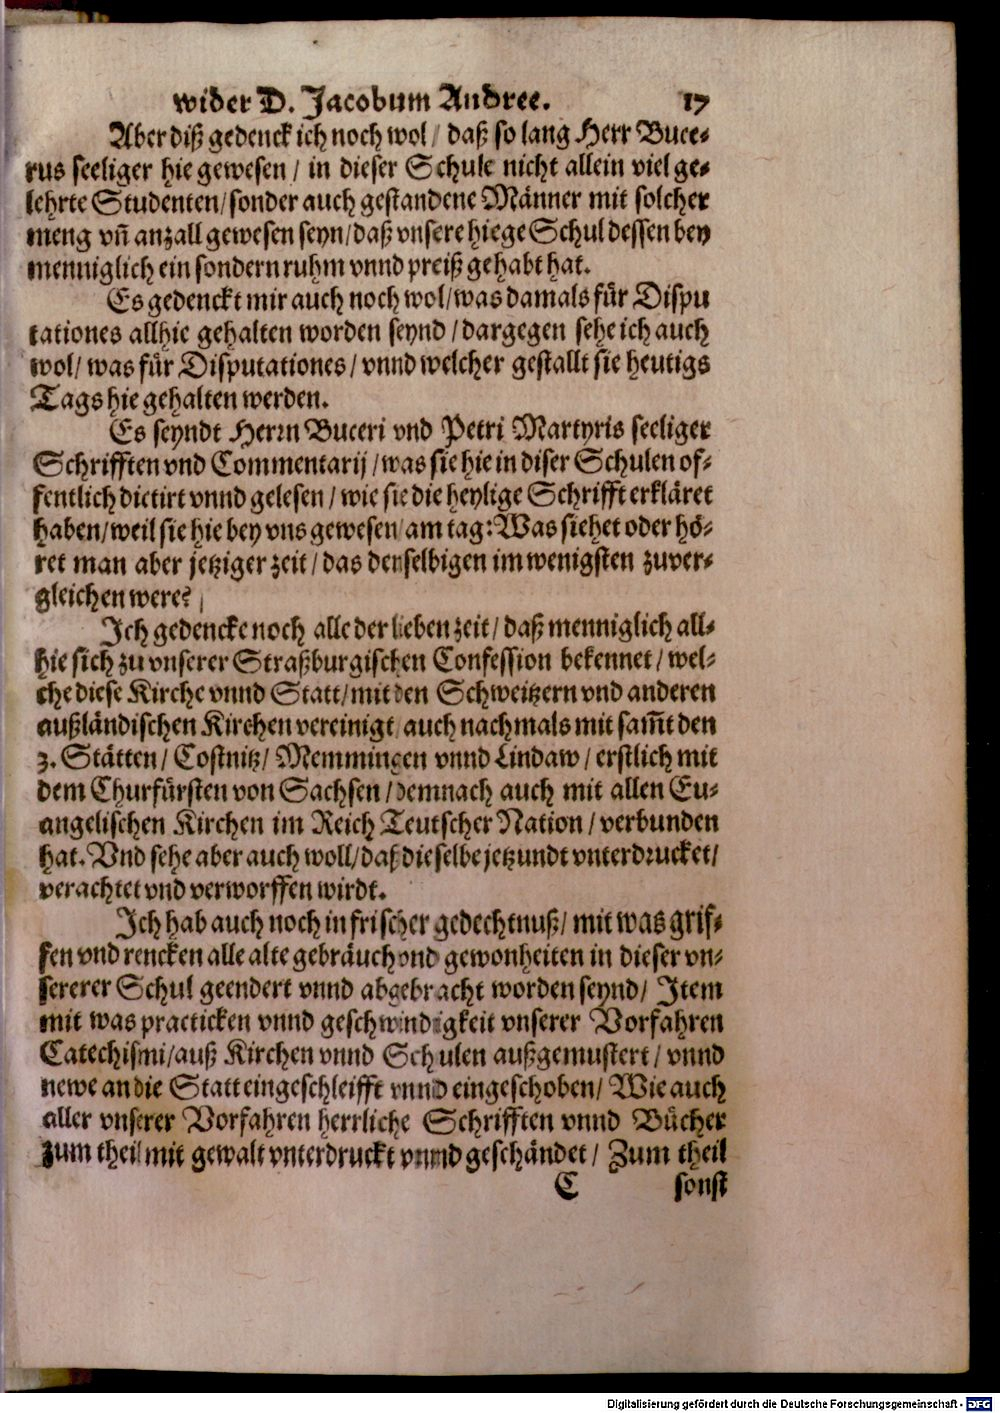 wider D. Jacobum Andree. 17
Aber diß gedenck ich noch wol / daß so lang Herr Buce-
rus seeliger hie gewesen / in dieser Schule nicht allein viel ge-
lehrte Studenten / sonder auch gestandene Männer mit solcher
meng vn̄ anzall gewesen seyn / daß vnsere hiege Schul dessen bey
menniglich ein sondern ruhm vnnd preiß gehabt hat.
Es gedenckt mir auch noch wol / was damals für Dispu
tationes allhie gehalten worden seynd / dargegen sehe ich auch
wol / was für Disputationes / vnnd welcher gestallt sie heutigs
Tags hie gehalten werden.
Es seyndt Herrn Buceri vnd Petri Martyris seeliger
Schrifften vnd Commentarij / was sie hie in diser Schulen of-
fentlich dictirt vnnd gelesen / wie sie die heylige Schrifft erkläret
haben / weil sie hie bey vns gewesen / am tag: Was siehet oder hö-
ret man aber jetziger zeit / das denselbigen im wenigsten zuver-
gleichen were?
Ich gedencke noch alle der lieben zeit / daß menniglich all-
hie sich zu vnserer Straßburgischen Confession bekennet / wel-
che diese Kirche vnnd Statt / mit den Schweitzern vnd anderen
außländischen Kirchen vereinigt / auch nachmals mit sam̄t den
3. Stätten / Costnitz / Memmingen vnnd Lindaw / erstlich mit
dem Churfürsten von Sachsen / demnach auch mit allen Eu-
angelischen Kirchen im Reich Teutscher Nation / verbunden
hat. Vnd sehe aber auch woll / daß dieselbe jetzundt vnterdrucket /
verachtet vnd verworffen wirdt.
Ich hab auch noch in frischer gedechtnuß / mit was grif-
fen vnd rencken alle alte gebräuch vnd gewonheiten in dieser vn-
sererer Schul geendert vnnd abgebracht worden seynd / Item
mit was practicken vnnd geschwindigkeit vnserer Vorfahren
Catechismi / auß Kirchen vnnd Schulen außgemustert / vnnd
newe an die Statt eingeschleifft vnnd eingeschoben / Wie auch
aller vnserer Vorfahren herrliche Schrifften vnnd Bücher
zum theil mit gewalt vnterdruckt vnnd geschändet / Zum theil
C sonst
Digitalisierung gefördert durch die Deutsche Forschungsgemeinschaft - DFG